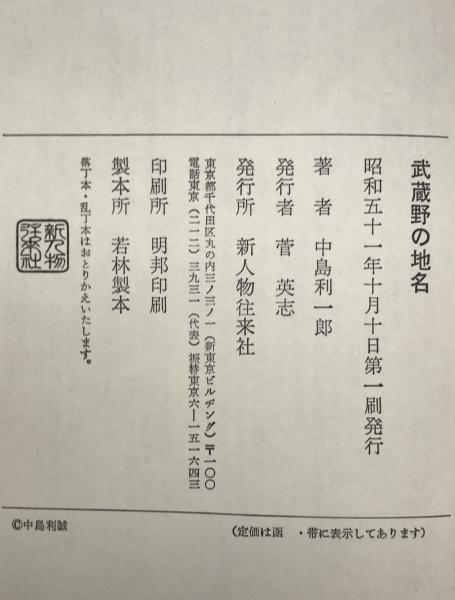 武蔵野の地名
昭和五十一年十月十日第一刷発行
著者 中島利一郎
発行者 菅英志
発行所 新人物往来社
東京都千代田区丸の内三ノ三ノ一(新東京ビルヂング)〒一〇〇
電話東京(二一二)三九三一(代表)振替東京六―一五一六四三
印刷所 明邦印刷
製本所 若林製本
落丁本・乱丁本はおとりかえいたします。
新人物往来社
(定価は函 ・帯に表示してあります)
©中島利誠